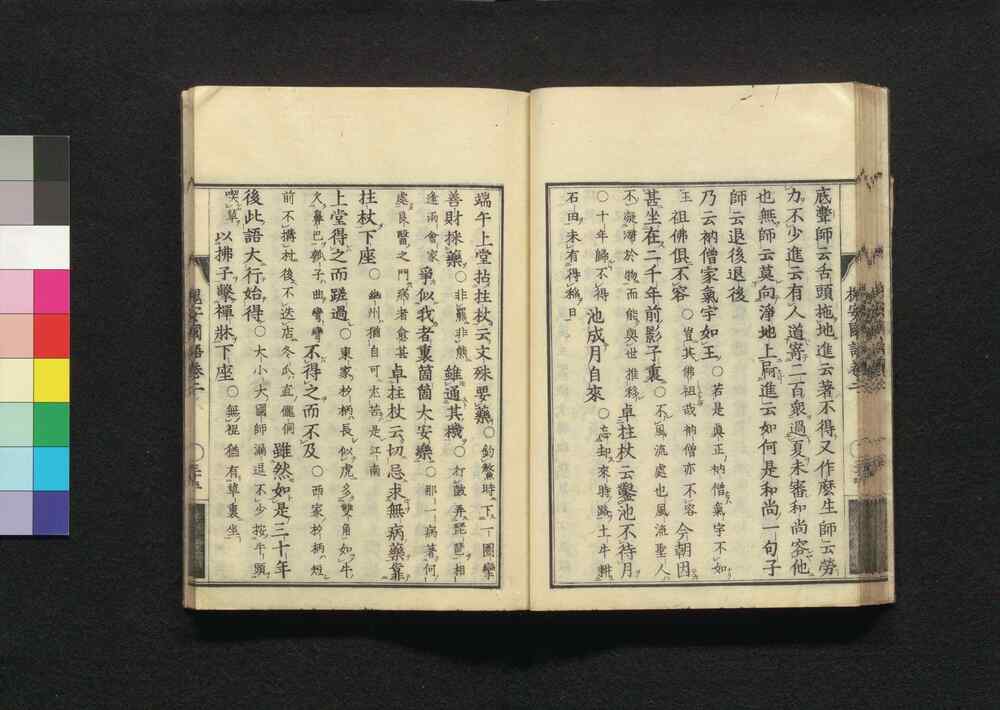 底聾師云舌頭拖地進云著不得又作麼生師云勞
力不少進云有人道寄二百衆過夏未審和尚容他
也無師云莫向淨地上屙進云如何是和尚一句子
師云退後退後
乃云衲僧家氣宇如王○若是眞正衲僧氣宇不如
王祖佛俱不容○豈其佛祖哉衲僧亦不容今朝因
甚坐在二千年前影子裏○不風流處也風流聖人
不凝滯於物而能與世推移卓拄杖云鑿池不待月
○十年歸不得池成月自來○忘却來時路土牛耕
石田未有得稱日
槐安國語卷二
端午上堂拈拄杖云文殊要藥○釣鰲時下一圈攣
善財採藥○非羆非熊雖通其機○打皷弄琵琶相
逢兩會家爭似我者裏箇箇大安樂○那一病著何
處良醫之門病者愈甚卓拄杖云切忌求無病藥靠
拄杖下座○幽州猶自可尤苦是江南
上堂得之而蹉過○東家杓柄長似虎多雙角如牛
欠鼻巴瓠子曲彎彎不得之而不及○西家杓柄短
前不搆村後不迭店冬瓜直儱侗雖然如是三十年
後此語大行始得○大小大國師漏逗不少按牛頭
喫草以拂子擊禪牀下座○無裩猶有草裏坐
槐安國語卷二